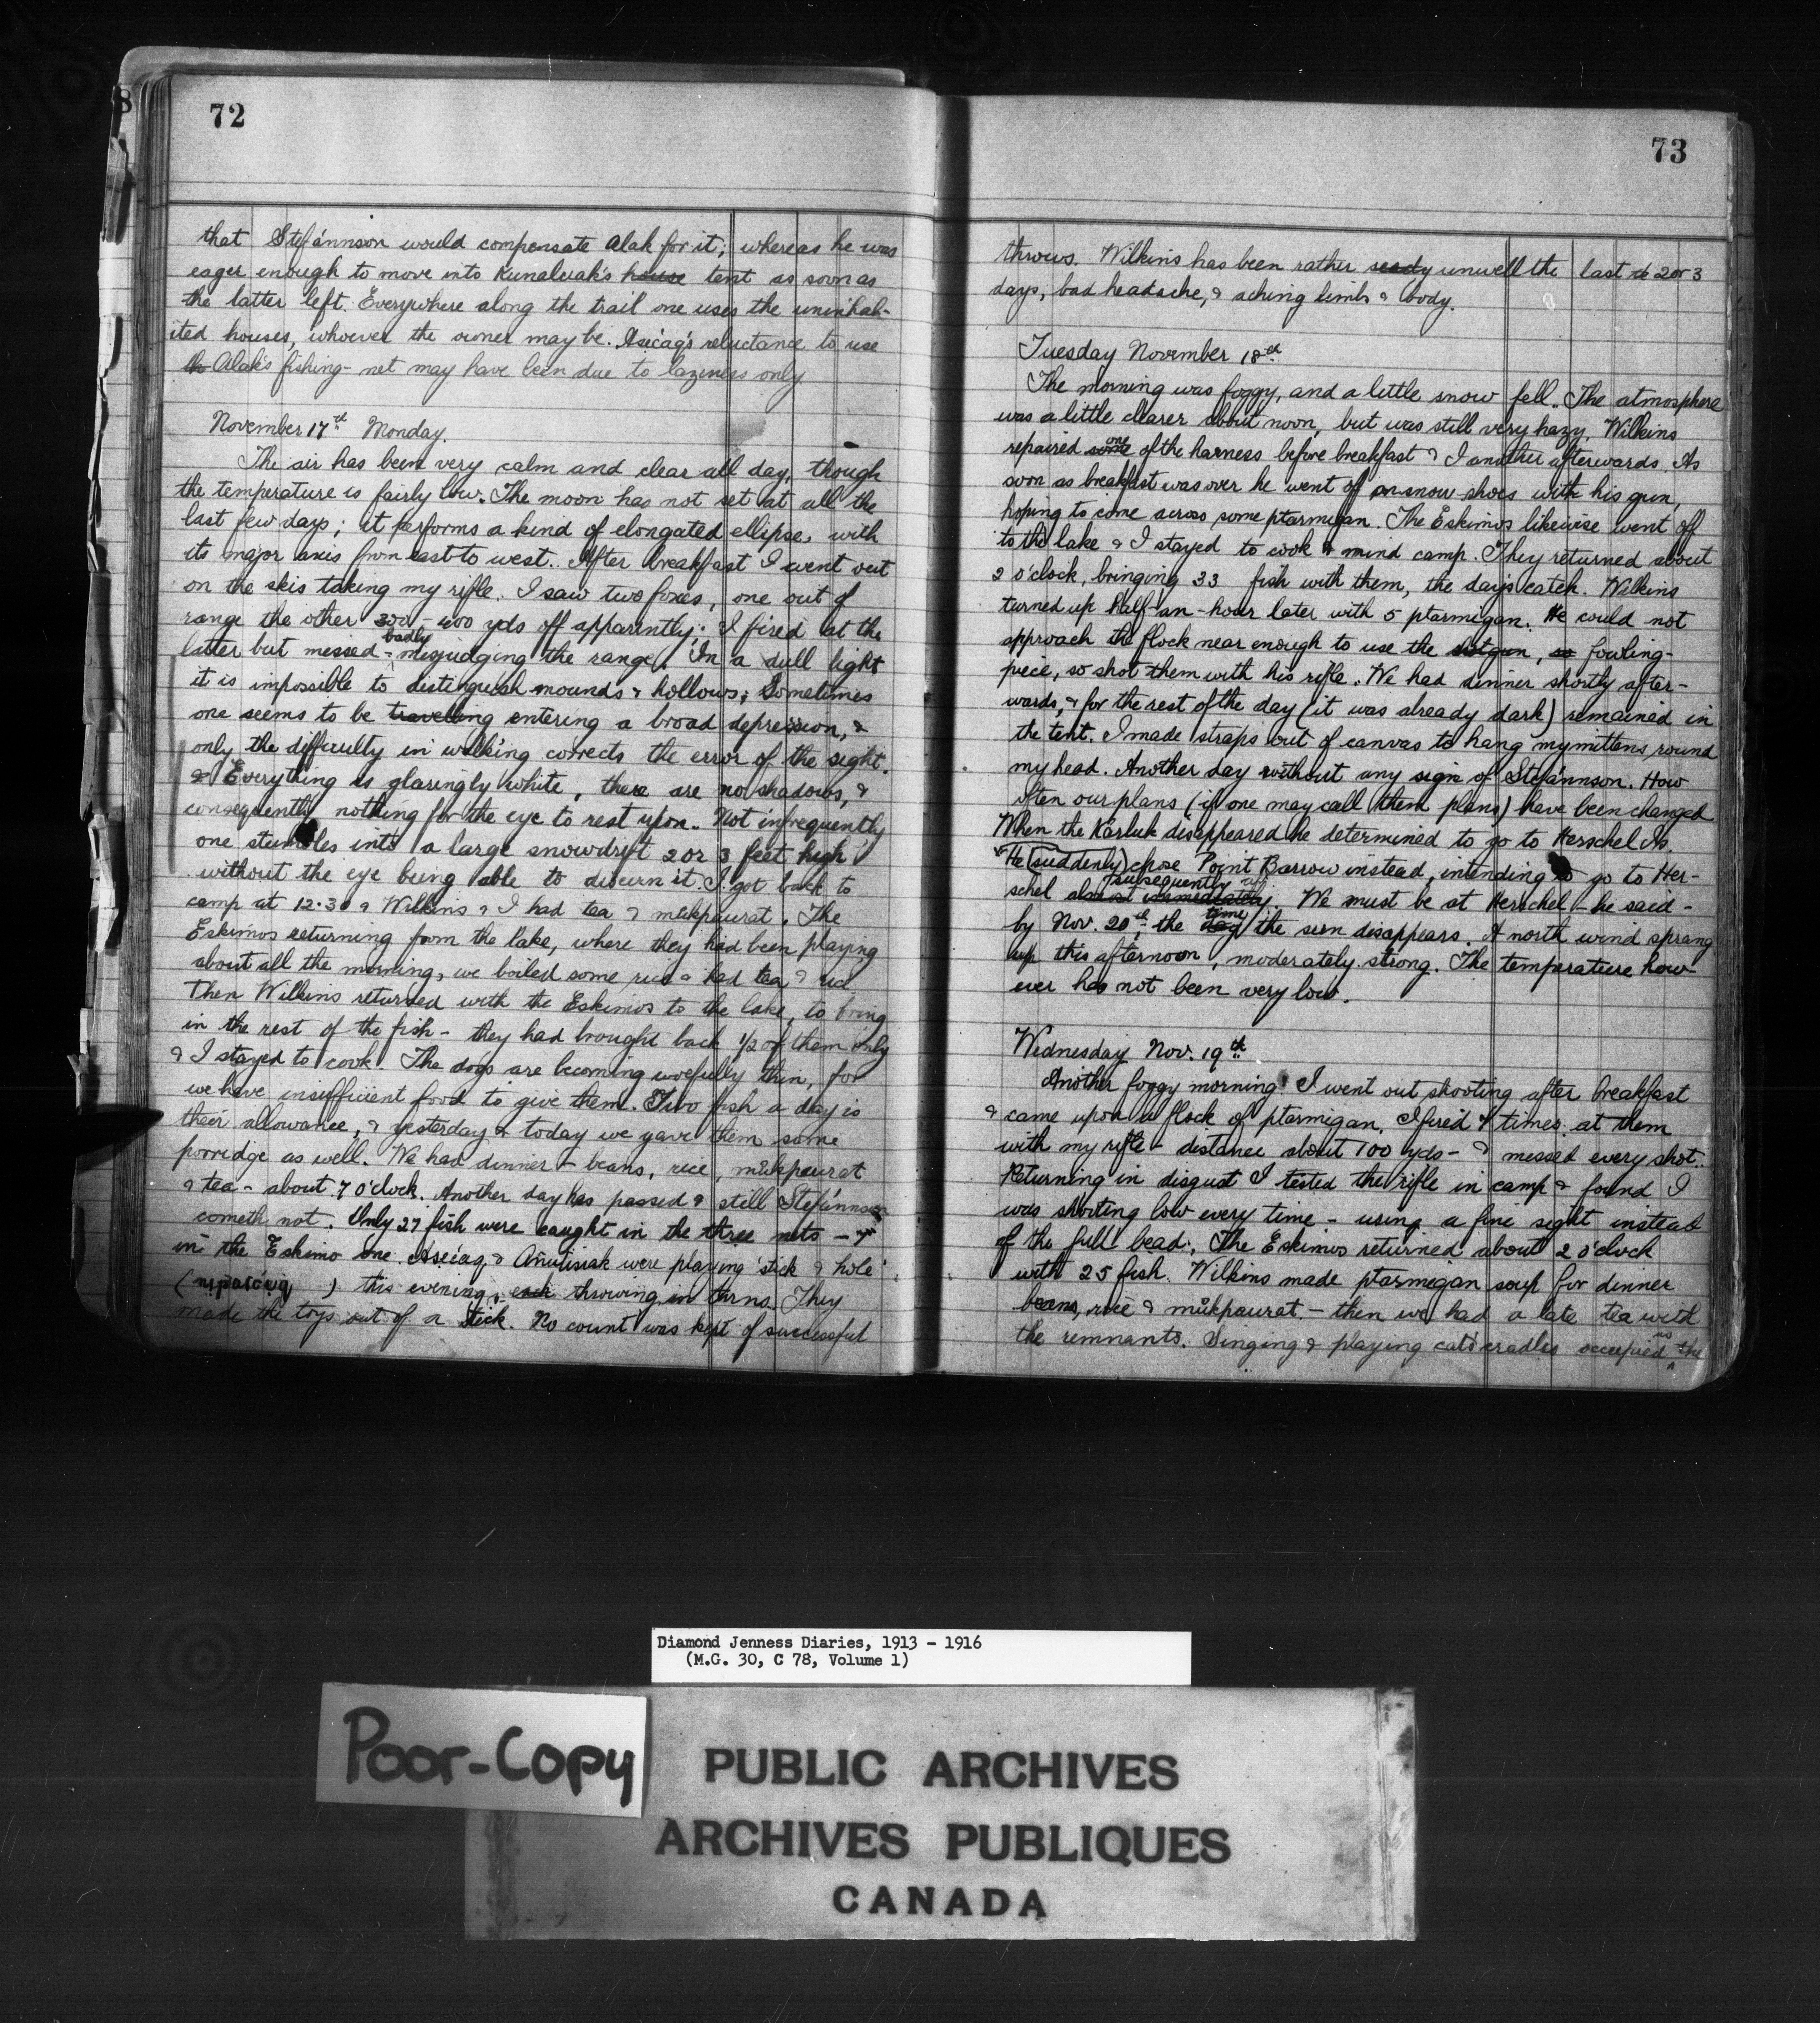 72
that Stefánnson would compensate Alak for it; whereas he was
eager enough to move into Kunaluak's house tent as soon as
the latter left. Everywhere along the trail one uses the uninhab-
ited houses, whoever the owner may be. Aseacaq's reluctance to use
th Alak's fishing-net may have been due to laziness only.
November 17th Monday.
The air has been very calm and clear all day, though
the temperature is fairly low. The moon has not set at all the
last few days; it performs a kind of elongated ellipse, with
its major axis from east to west. After breakfast I went out
on the skis taking my rifle. I saw two foxes, one out of
range the other 300-400 yds off apparently; I fired at the
latter but missed - badly misjudging the range. In a dull light
it is impossible to distinguish mounds & hollows; Sometimes
one seems to be travelling entering a broad depression, &
only the difficulty in walking corrects the error of the sight.
& Everything is glaringly white, there are no shadows, &
consequently nothing for the eye to rest upon. Not infrequently
one stumbles into a large snowdrift 2 or 3 feet high
without the eye being able to discern it. I got back to
camp at 12.30 & Wilkins & I had tea & mŭkpaurat. The
Eskimos returning from the lake, where they had been playing
about all the morning, we boiled some rice & had tea & rice
Then Wilkins returned with the Eskimos to the lake, to bring
in the rest of the fish - they had brought back 1/2 of them only
& I stayed to cook. The dogs are becoming woefully thin, for
we have insufficient food to give them. Two fish a day is
their allowance, & yesterday & today we gave them some
porridge as well. We had dinner - beans, rice, mŭkpaurat
& tea - about 7 o'clock. Another day has passed & still Stefánnson
cometh not. Only 27 fish were caught in the three nets - 7
in the Eskimo one. & Añutisiak were playing 'stick & hole'
( ) this evening, each throwing in turns. They
made the toys out of a stick. No count was kept of successful
73
throws. Wilkins has been rather seedy unwell the last 2 or 3
days, bad headache, & aching limbs & body.
Tuesday November 18th
The morning was foggy, and a little snow fell. The atmosphere
was a little clearer about noon, but was still very hazy. Wilkins
repaired some one of the harness before breakfast & I another afterwards. As
soon as breakfast was over he went off on snow-shoes with his gun,
hoping to come across some ptarmigan. The Eskimos likewise went off
to the lake & I stayed to cook & mind camp. They returned about
2 o'clock, bringing 33 fish with them, the day's catch. Wilkins
turned up half-an-hour later with 5 ptarmigan. He could not
approach the flock near enough to use the shotgun, so fowling-
piece, so shot them with his rifle. We had dinner shortly after-
wards, & for the rest of the day (it was already dark) remained in
the tent. I made straps out of canvas to hang my mittens round
my head. Another day without any sign of Stefánnson. How
often our plans (if one may call them plans) have been changed
When the Karluk disappeared he determined to go to Herschel Is.
He (suddenly) chose Point Barrow instead, intending to go to Her-
schel almost immediately subsequently. We must be at Herschel - he said -
by Nov. 20th, the day time the sun disappears. A north wind sprang
up this afternoon, moderately strong. The temperature how-
ever has not been very low.
Wednesday Nov. 19th
Another foggy morning. I went out shooting after breakfast
& came upon a flock of ptarmigan. I fired 4 times at them
with my rifle - distance about 100 yds - & missed every shot.
Returning in disgust I tested the rifle in camp & found I
was shooting low every time - using a fine sight instead
of the full bead. The Eskimos returned about 2 o'clock
with 25 fish. Wilkins made ptarmigan soup for dinner
beans, rice & mŭkpaurat - then we had a late tea with
the remnants. Singing & playing cat's cradles occupied us the
Diamond Jenness Diaries, 1913 - 1916
(M.G. 30, C 78, Volume 1)
Poor-Copy
PUBLIC ARCHIVES
ARCHIVES PUBLIQUES
CANADA